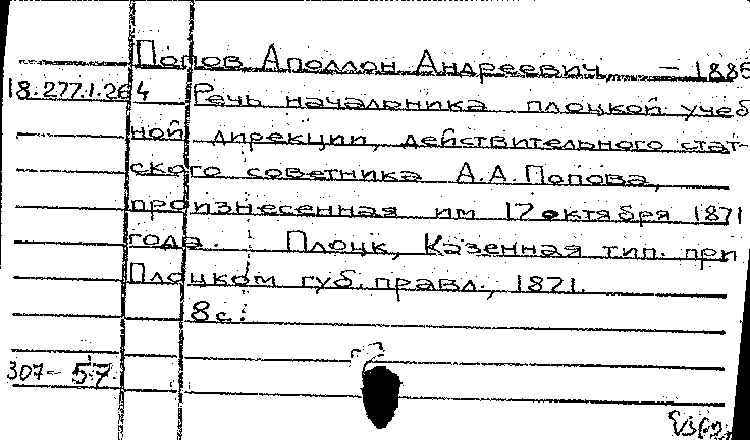 Попов Аполлон Андреевич, – 1886
18.277.1.264 Речь начальника плоцкой учеб
ной дирекции, действительного стат-
ского советника А.А. Попова,
произнесенная им 17 октября 1871
года. Плоцк, Казенная тип. при
Плоцком губ. правл., 1871.
8 с.
307– 57